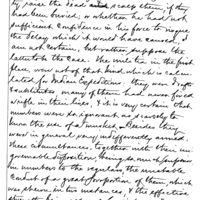 by raise the dead and scalp them, if they
had been buried, or whether he had not
sufficient confidence in his force to urge
a delay which it would have caused, I
am not certain, but rather suppose the
latter to be the case. The militia in the first
were not of that kind, which is
for Indian Expeditions. they were
substitutes, many of them had never fired
a rifle in their lives, & it is very certain that
numbers were so ignorant as scarcely to
know the use of a musket, & Besides they
were in general very indifferently armed.
These circumstances, together with their
governable disposition, being so much superior
in numbers to the regulars the unstable
conduct of a great proportion of them, which
was shewn in two instances, & the effective